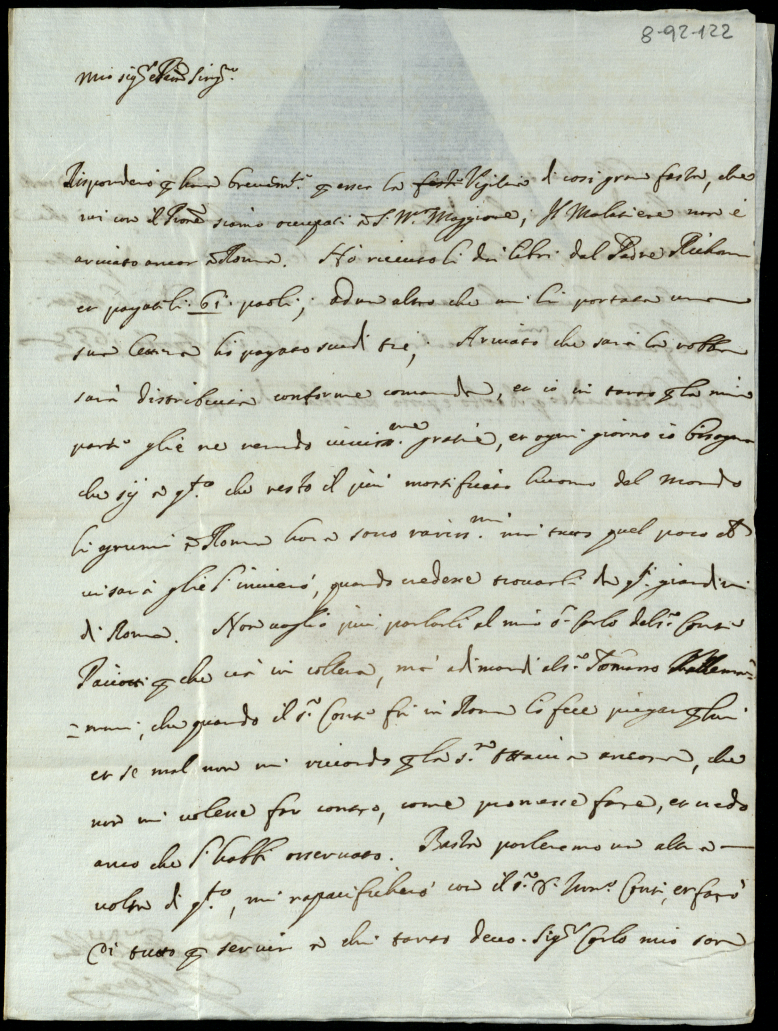 8-92-122
Mio sig.r e Pron Sing.re
Risponderò p hora brevem.te p esser la Vigilia di così gran festa, che
noi con il siamo occupati à S. M.a Maggiore; Il Mulatiere non è
arivato ancor à Roma. Hò ricevuto li dui libri dal Padre
et pagatili 61 paoli; ad un altro che mi li portata una
sua lettera hò pagato scudi tre; Arivato che sarà la robba
sarà distribuita conforme comanda, et io in tanto p la mia
parte gliè ne rendo gratie, et ogni giorno io bisogna
che sij à q.to che resto il più mortificato huomo del mondo
li à Roma hora sono rariss.mi mà tutto quel poco ch
vi sarà gliel' invierò, quando credesse trovarli da q.ti giardini
di Roma. Non voglio più parlarli al mio s.r Carlo del s.r Conte
p che và in collera, mà adimandi al s.r Tomasso
che quando il s.r Conte fù in Roma lo fece pregar p lui
et se mal non mi ricordo p la s.ra Ottavia ancora, che
non mi volesse far contro, come promesse fare, et credo
anco che l'habbi osservato. Basta parleremo un altra
volta di q.to, mi rapacificherò con il s.r Conte, et farò
di tutto p servir à chi tanto devo. Sig.r Carlo mio sarà